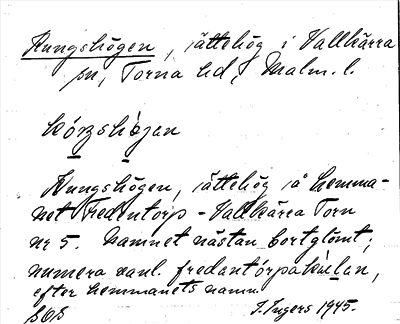 Kungshögen, jättehög i Vallkärra
sn, Torna hd, Malm. l.
kóŋshø̀jan
Kungshögen, jättehög å hemma-
net Fredentorp - Vallkärra Torn
nr 5. Namnet nästan bortglömt;
numera vanl. fredantórpakùlan,
efter hemmanets namn.
SOB
I. Ingers 1945.